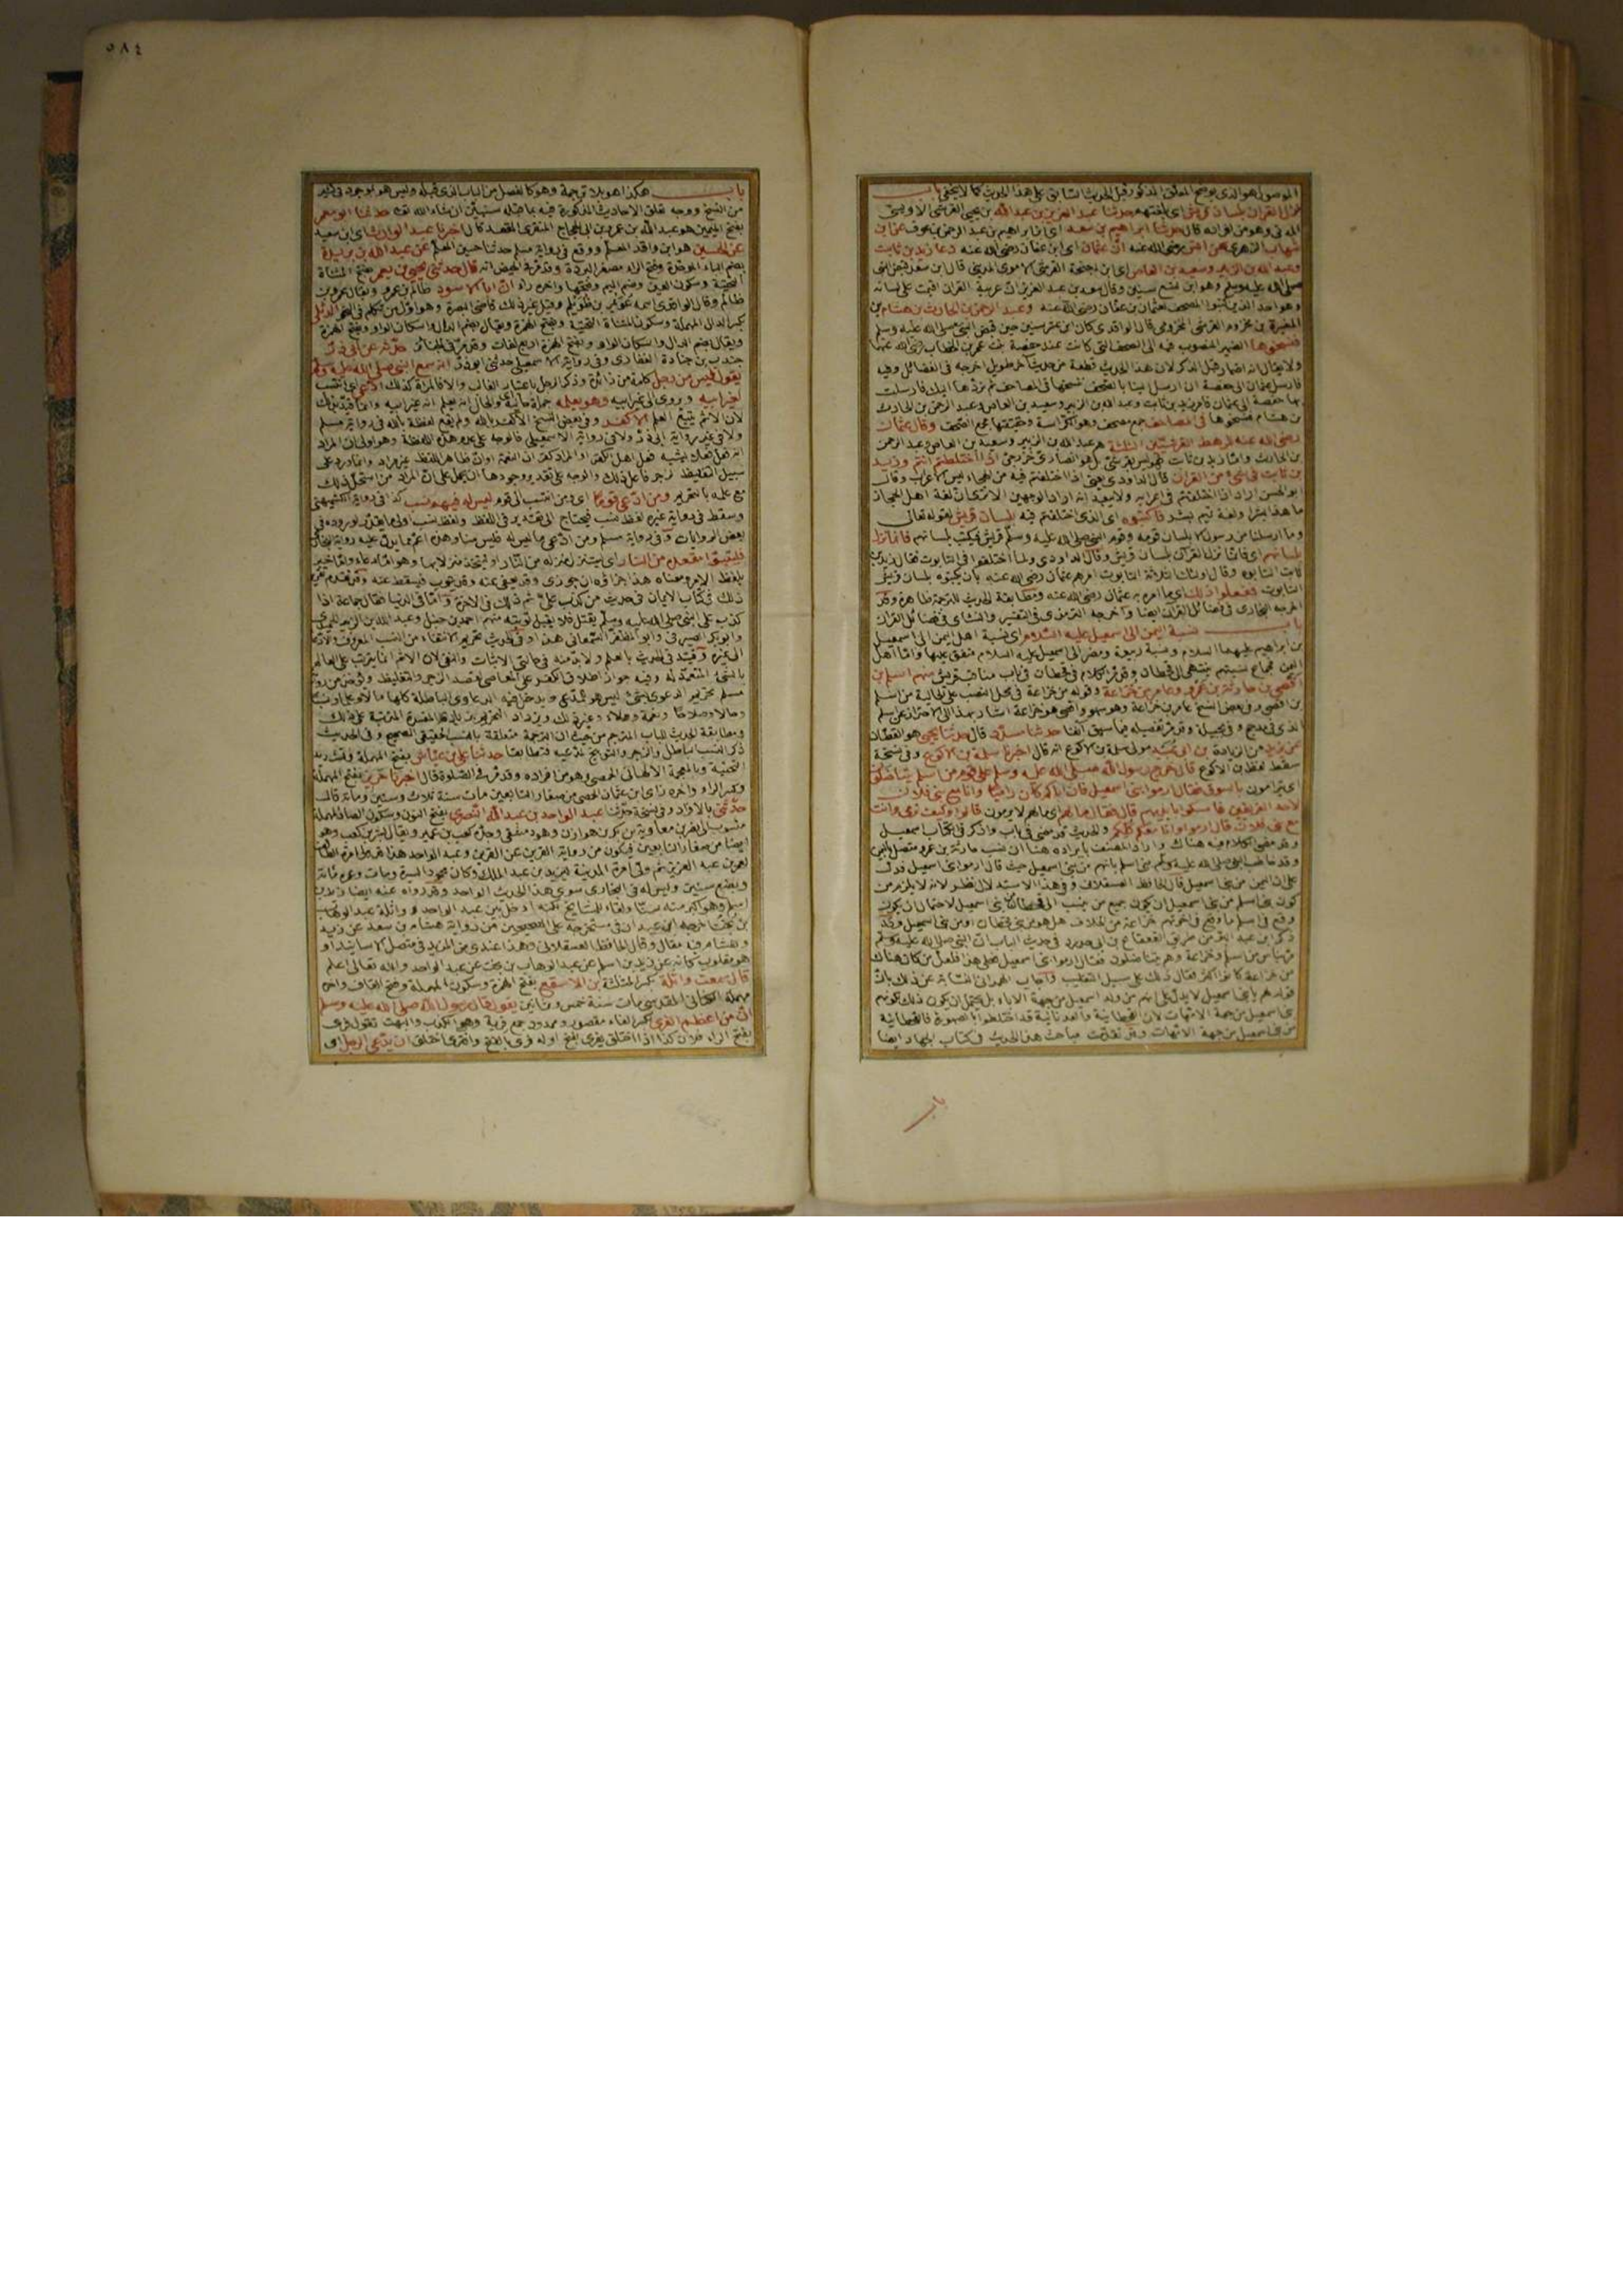 الموصول هو الذي يوضح المعلق المذكور قبل الحديث السابق على هذا الحديث كما لا يخفى باب
نزل القران بلسان قريش اى بلغتهم حدثنا عبد العزيز بن عبد الله بن يحيى القرشى الاويسى
المدنى وهو من افراده قال حدثنا ابراهيم بن سعد اى ابن ابراهيم بن عبد الرحمن بن عوف عن ابن
شهاب الزهرى عن انس رضى الله عنه ان عثمان اى ابن عفان رضى الله عنه دعا زيد بن ثابت
وعبد الله بن الزبير وسعيد بن العاص اى ابن احيحة القرشى الاموى المدنى قال ابن سعد قبض النبى
صلى الله عليه وسلم وهو ابن تسع سنين وقال سعيد بن عبد العزيز ان عربية القران اقيمت على لسانه
وهو احد الذين كتبوا المصحف لعثمان بن عفان رضى الله عنه وعبد الرحمن بن الحارث بن هشام بن
المغيرة بن مخزوم القرشى المخزومى قال الواقدى كان ابن عشر سنين حين قبض النبى صلى الله عليه وسلم
فنسخوها الضمير المنصوب فيه الى الصحف التى كانت عند حفصة بنت عمر بن الخطاب رضى الله عنهما
ولا يقال انه اضمار قبل الذكر لان هذا الحديث قطعة من حديث اخر طويل اخرجه فى الفضائل وفيه
فارسل عثمان الى حفصة ان ارسلى الينا بالصحف ننسخها فى المصاحف ثم نردها اليك فارسلت
بها حفصة الى عثمان فامر زيد بن ثابت وعبد الله بن الزبير وسعيد بن العاص وعبد الرحمن بن الحارث
بن هشام فنسخوها فى المصاحف جمع مصحف وهو الكراسة وحقيقتها مجمع الصحف وقال عثمان
رضى الله عنه للرهط القرشيين الثلثة هم عبد الله بن الزبير وسعيد بن العاص وعبد الرحمن
بن الحارث واما زيد بن ثابت فهو ليس بقرشى بل هو انصارى خزرجى اذا اختلفتم انتم وزيد
بن ثابت فى شىء من القران قال الداودى يعنى اذا اختلفتم فيه من الهجاء ليس الاعراب وقال
ابو الحسن اراد اذا اختلفتم فى اعرابه ولا يبعد انه اراد الوجهين الا ترى ان لغة اهل الحجاز
ما هذا بشرا ولغة تميم بشر فاكتبوه اى الذى اختلفتم فيه بلسان قريش لقوله تعالى
وما ارسلنا من رسول الا بلسان قومه وقوم النبى صلى الله عليه وسلم قريش فيكتب بلسانهم فانما نزل
بلسانهم اى فانما نزل القرآن بلسان قريش وقال الداودى ولما اختلفوا فى التابوت فقال زيد بن
ثابت التابوه وقال اولئك الثلاثة التابوت امرهم عثمان رضى الله عنه بان يكتبوه بلسان قريش
التابوت ففعلوا ذلك اى ما امر به عثمان رضى الله عنه ومطابقة الحديث للترجمة ظاهرة وقد
اخرجه البخارى فى فضائل القران ايضا واخرجه الترمذى فى التفسير والنسائى فى فضائل القران
باب نسبة اليمن الى اسمعيل عليه السلام اى نسبة اهل اليمن الى اسمعيل
بن ابراهيم عليهما السلام ونسبة ربيعة ومضر الى اسمعيل عليه السلام متفق عليها واما اهل
اليمن فجماع نسبتهم ينتهى الى قحطان وقد مر الكلام فى قحطان فى باب مناقب قريش منهم اسلم بن
افصى بن حارثة بن عمرو بن عامر من خزاعة وقوله من خزاعة فى محل النصب على الحالية من اسلم
بن افصى وفى بعض النسخ عامر بن خزاعة وهو سهو وافصى هو خزاعة اشار بهذا الى الاحتراز عن اسلم
الذى فى مذحج وفى بجيلة وقد مر تفصيله فيما سبق آنفا حدثنا مسدد قال حدثنا يحيى هو القطان
عن يزيد من الزيادة بن ابى عبيد مولى سلمة بن الاكوع انه قال اخبرنا سلمة بن الاكوع وفى نسخة
سقط لفظ بن الاكوع قال خرج رسول الله صلى الله عليه وسلم على قوم من اسلم يتناضلون
اى يترامون بالسوق فقال ارموا بنى اسمعيل فان اباكم كان راميا وانا مع بنى فلان
لاحد الفريقين فامسكوا بايديهم قال فقال ما لهم اى ما لهم لا يرمون قالوا وكيف نرمى وانت
مع بنى فلان قال ارموا وانا معكم كلكم والحديث قد مضى فى باب واذكر فى الكتاب اسمعيل
وقد مضى الكلام فيه هناك واراد المصنف بايراده هنا ان نسب حارثة بن عمرو متصل باليمن
وقد خاطب النبى صلى الله عليه وسلم بنى اسلم بانهم من بنى اسمعيل حيث قال ارموا بنى اسمعيل فدل
على ان اليمن من بنى اسمعيل قال الحافظ العسقلانى وفى هذا الاستدلال نظر لانه لا يلزم من
كون بنى اسلم من بنى اسمعيل ان يكون جميع من ينسب الى قحطان من بنى اسمعيل لاحتمال ان يكون
وقع فى اسلم ما وقع فى اخوتهم خزاعة من الخلاف هل هو من بنى قحطان او من بنى اسمعيل وقد
ذكر ابن عبد البر من طريق القعقاع بن ابى حدرد فى حديث الباب ان النبى صلى الله عليه وسلم
مر بناس من اسلم وخزاعة وهم يتناضلون فقال ارموا بنى اسمعيل فعلى هذا فلعل من كان هناك
من خزاعة كانوا اكثر فقال ذلك على سبيل التغليب واجاب الهمدانى النسابة عن ذلك بان
قوله لهم يا بنى اسمعيل لا يدل على انهم من ولد اسمعيل من جهة الاباء بل يحتمل ان يكون ذلك لكونهم
بنى اسمعيل من جهة الامهات لان القحطانية والعدنانية قد اختلطوا بالصهورة فالقحطانية
من بنى اسمعيل من جهة الامهات وقد تقدمت مباحث هذا الحديث فى كتاب الجهاد ايضا
٥٨٤
باب هكذا هو بلا ترجمة وهو كالفصل من الباب الذى قبله وليس هو بموجود فى كثير
من النسخ ووجه تعلق الاحاديث المذكورة فيه بما قبله سنبين ان شاء الله تعالى حدثنا ابو معمر
بفتح الميمين هو عبد الله بن عمرو بن ابى الحجاج المنقرى المقعد قال اخبرنا عبد الوارث اى ابن سعيد
عن الحسين هو ابن واقد المعلم ووقع فى رواية مسلم حدثنا حسين المعلم عن عبد الله بن بريدة
بضم الباء الموحدة وفتح الراء مصغر البردة وقد مر فى الحيض انه قال حدثنى يحيى بن يعمر بفتح المثناة
التحتية وسكون العين وضم الميم وفتحها واخره راء ان ابا الاسود ظالم بن عمرو ويقال عمرو بن
ظالم وقال الواقدى اسمه عويمر بن ظويلم وقيل غير ذلك قاضى البصرة وهو اول من تكلم فى النحو الدئلى
بكسر الدال المهملة وسكون المثناة التحتية وبفتح الهمزة ويقال بضم الدال واسكان الواو وبفتح الهمزة
ويقال بضم الدال واسكان الواو وبفتح الهمزة اربع لغات وقد مر فى الجنائز حدثه عن ابى ذر
جندب بن جنادة الغفارى وفى رواية الاسمعيلى حدثنى ابو ذر انه سمع النبى صلى الله عليه وسلم
يقول ليس من رجل كلمة من زائدة وذكر الرجل باعتبار الغالب والا فالمراة كذلك ادعى اى انتسب
لغير ابيه ويروى الى غير ابيه وهو يعلمه جملة حالية اى والحال انه يعلم انه غير ابيه وانما قيد بذلك
لان الاثم يتبع العلم الا كفر وفى بعض النسخ الا كفر بالله ولم يقع لفظة بالله فى رواية مسلم
ولا فى غير رواية ابى ذر ولا فى رواية الاسمعيلى فالوجه على عدم هذه اللفظة وهو اولى ان المراد
انه فعل فعلا يشبه فعل اهل الكفر او المراد كفران النعمة او ان ظاهر اللفظ غير مراد وانما ورد على
سبيل التغليظ لزجر فاعل ذلك والوجه على تقدير وجودها ان يحمل على ان المراد من استحل ذلك
مع علمه بالتحريم ومن ادعى قوما اى ومن انتسب الى قوم ليس له فيهم نسب كذا فى رواية الكشميهنى
وسقط فى رواية غيره لفظ نسب فيحتاج الى تقدير فى اللفظ ولفظ نسب اولى ما يقدر لوروده فى
بعض الروايات وفى رواية مسلم ومن ادعى ما ليس له فليس منا وهذه اعم مما يدل عليه رواية البخارى
فليتبوا مقعده من النار اى لينزل منزله من النار او ليتخذ منزلا بها وهو اما دعاء واما خبر
بلفظ الامر ومعناه هذا جزاؤه ان جوزى وقد يعفى عنه وقد يتوب فيسقط عنه وقد تقدم تحرير
ذلك فى كتاب الايمان فى حديث من كذب على ثم ذلك فى الاخرة واما فى الدنيا فقال جماعة اذا
كذب على النبى صلى الله عليه وسلم يقتل فلا يقبل توبته منهم احمد بن حنبل وعبد الله بن الزبير الحميدى
وابو بكر الصيرفى وابو المظفر السمعانى هذا وفى الحديث تحريم الانتفاء من النسب المعروف والادعاء
الى غيره وقيد فى الحديث بالعلم ولا بد منه فى حالتى الاثبات والنفى لان الاثم انما يترتب على العالم
بالشىء المتعمد له وفيه جواز اطلاق الكفر على المعاصى لقصد الزجر والتغليظ ويؤخذ من رواية
مسلم تحريم الدعوى بشىء ليس هو للمدعى ويدخل فيه الدعاوى الباطلة كلها مالا وعلما ونسبا
وحالا وصلاحا ونعمة وولاء وغير ذلك ويزداد التحريم بزيادة المفسدة المترتبة على ذلك
ومطابقة الحديث للباب المترجم من حيث ان الترجمة متعلقة بالنسب الحقيقى الصحيح وفى الحديث
ذكر النسب الباطل والزجر والتوبيخ لمدعيه فتطابقا حدثنا على بن عياش بفتح المهملة وتشديد
التحتية وبالمعجمة الالهانى الحمصى وهو من افراده وقد مر فى الصلوة قال اخبرنا حريز بفتح المهملة
وكسر الراء واخره زاى ابن عثمان الحمصى من صغار التابعين مات سنة ثلاث وستين ومائة قال
حدثنى بالافراد وفى نسخة حدثنا عبد الواحد بن عبد الله النصرى بفتح النون وسكون الصاد المهملة
منسوب الى نصر بن معاوية بن بكر بن هوازن وهو دمشقى وجده كعب بن عمير ويقال بشر بن كعب وهو
ايضا من صغار التابعين فيكون من رواية القرين عن القرين وعبد الواحد هذا قد ولى امرة الطائف
لعمر بن عبد العزيز ثم ولى امرة المدينة ليزيد بن عبد الملك وكان محمود السيرة ومات وعمره مائة
وبضع سنين وليس له فى البخارى سوى هذا الحديث الواحد وقد رواه عنه ايضا زيد بن
اسلم وهو اكبر منه سنا ولقاء للمشايخ لكنه ادخل بين عبد الواحد وواثلة عبد الوهاب
بن بخت اخرجه ابن عبدان فى مستخرجه على الصحيحين من رواية هشام بن سعد عن زيد
وهشام فيه مقال وقال الحافظ العسقلانى وهذا عندى من المزيد فى متصل الاسانيد او
هو مقلوب كانه عن زيد بن اسلم عن عبد الوهاب بن بخت عن عبد الواحد والله تعالى اعلم
قال سمعت واثلة بكسر المثلثة بن الاسقع بفتح الهمزة وسكون المهملة وفتح القاف واخره
مهملة الكنانى المقدسى مات سنة خمس وثمانين يقول قال رسول الله صلى الله عليه وسلم
ان من اعظم الفرى بكسر الفاء مقصور وممدود جمع فرية وهى الكذب والبهت تقول فرى
بفتح الراء فلان كذا اذا اختلق يفرى بفتح اوله فرى بالفتح وافترى اختلق ان يدعى الرجل اى